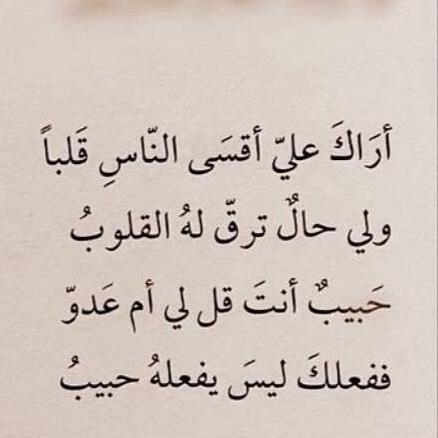 أرَاكَ عليّ أقسَى النّاسِ قَلباً
ولي حالٌ ترقّ لهُ القلوبُ
حَبيبٌ أنتَ قل لي أم عَدوّ
ففعلكَ ليسَ يفعلهُ حبيبُ